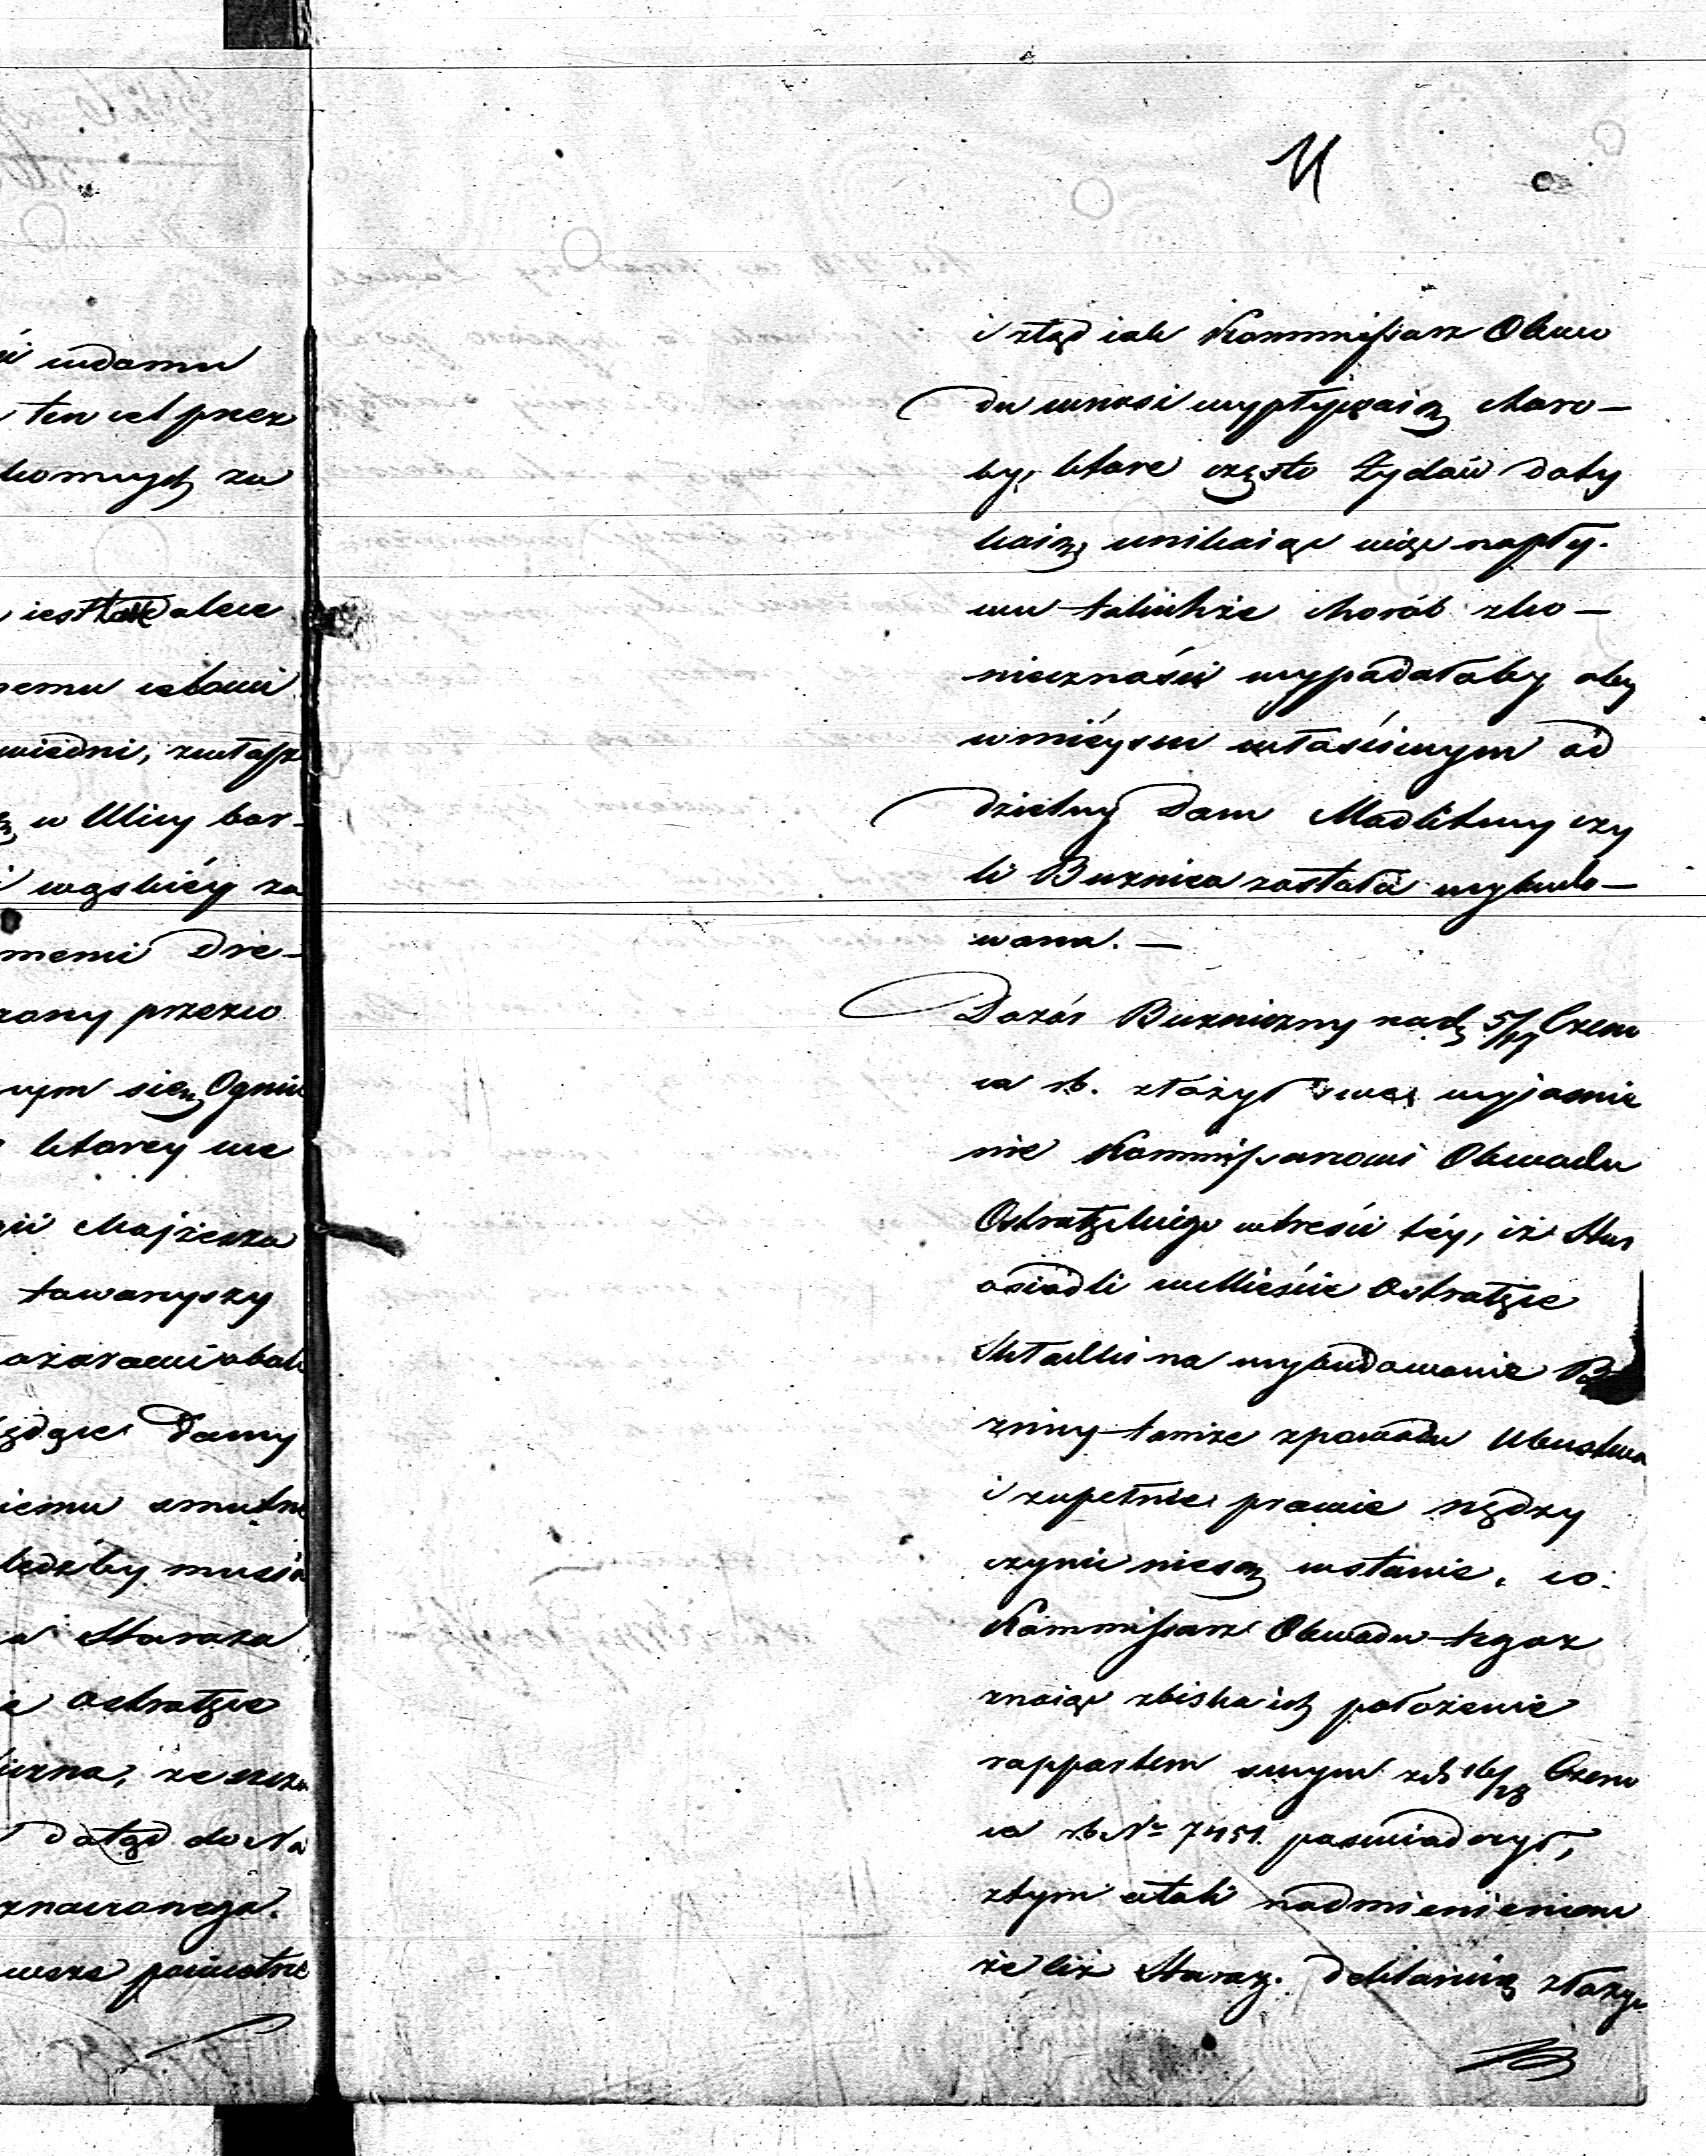 11
i ztąd iak Kommissarz Obwo
du wnosi wypływaią choro–
by, które często Żydów doty
kaią, unikaiąc więc napły–
wu takichże chorób zko–
nieczności wypadałoby aby
w mieyscu właściwym od
dzielny Dom Modlitwy czy
li Buznica została wybudo–
wana. —
Dozór Buzniczny nad 5/17 Czerw
ca rb. złożył swe wyjaśnie
nie Kommissarzowi Obwodu
Ostrołęckiego wtreści téy, iż Star
osiadli w Mieście Ostrołęce
składki na wybudowanie B
żnicy tamże zpowodu Ubustwa
i zupełnie prawie nędzy
czynić niesą wstanie, co
Kommissarz Obwodu tegoż
znaiąc zbliska ich położenie
rapportem swym zd. 16/28 Czerw
ca rb. Nr 7451. poświadczył,
ztym atoli nadmienieniem
że liż Staroz. deklaruią złożyć
ui wdomu
ten cel przez
komuych za
iest dalece
nemu celowi
wiedni, zwłasz
w Ulicy bar–
wązkiéy za
nemi Dre–
rzony przezco
nym się Ogniu
którey we
gii Mojżesza
towarzyszy
ożarowi obok
będące Domy
iemu smutne
kędźby musia
a Staroza
ie Ostrołęce
iczna, ze szcze
dotąd do Na
znaczonego.
wsze powietrze